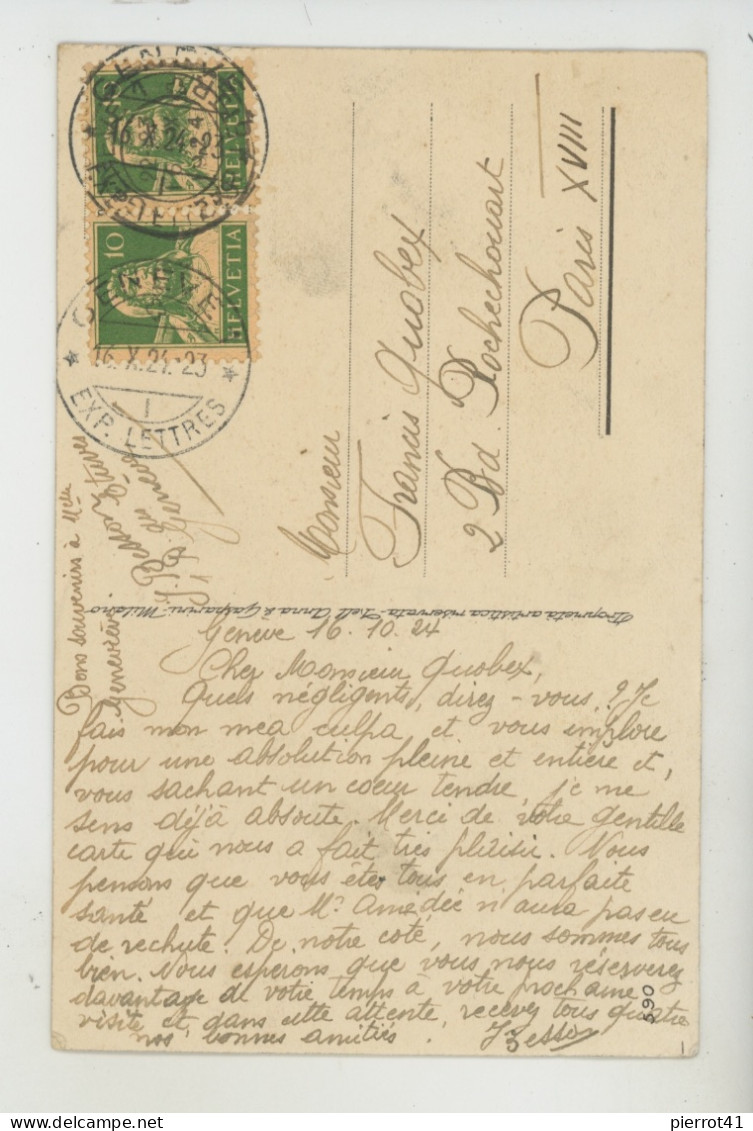 10
HELVETIA
HELVETIA
GENÈVE
16.X.24-23
1
EXP. LETTRES
16.X.24-23
Monsieur
Francis Quobex
2 Bd. Rochechouart
Paris XVIII
Proprietà artistica riservata - Dell'Anna & Gasparini - Milano
590
Bons souvenirs à Melle
Geneviève.
Genève
Genève 16.10.24
Cher Monsieur Quobex,
Quels négligents, direz-vous ? Je
fais mon mea culpa et vous implore
pour une absolution pleine et entière et,
vous sachant un cœur tendre, je me
sens déjà absoute. Merci de votre gentille
carte qui nous a fait très plaisir. Nous
pensons que vous êtes tous en parfaite
santé et que Mr. Amédée n'aura pas eu
de rechute. De notre coté, nous sommes tous
bien. Nous esperons que vous nous réserverez
davantage de votre temps à votre prochaine
visite et, dans cette attente, recevez tous quatre
nos bonnes amitiés.
pierrot41